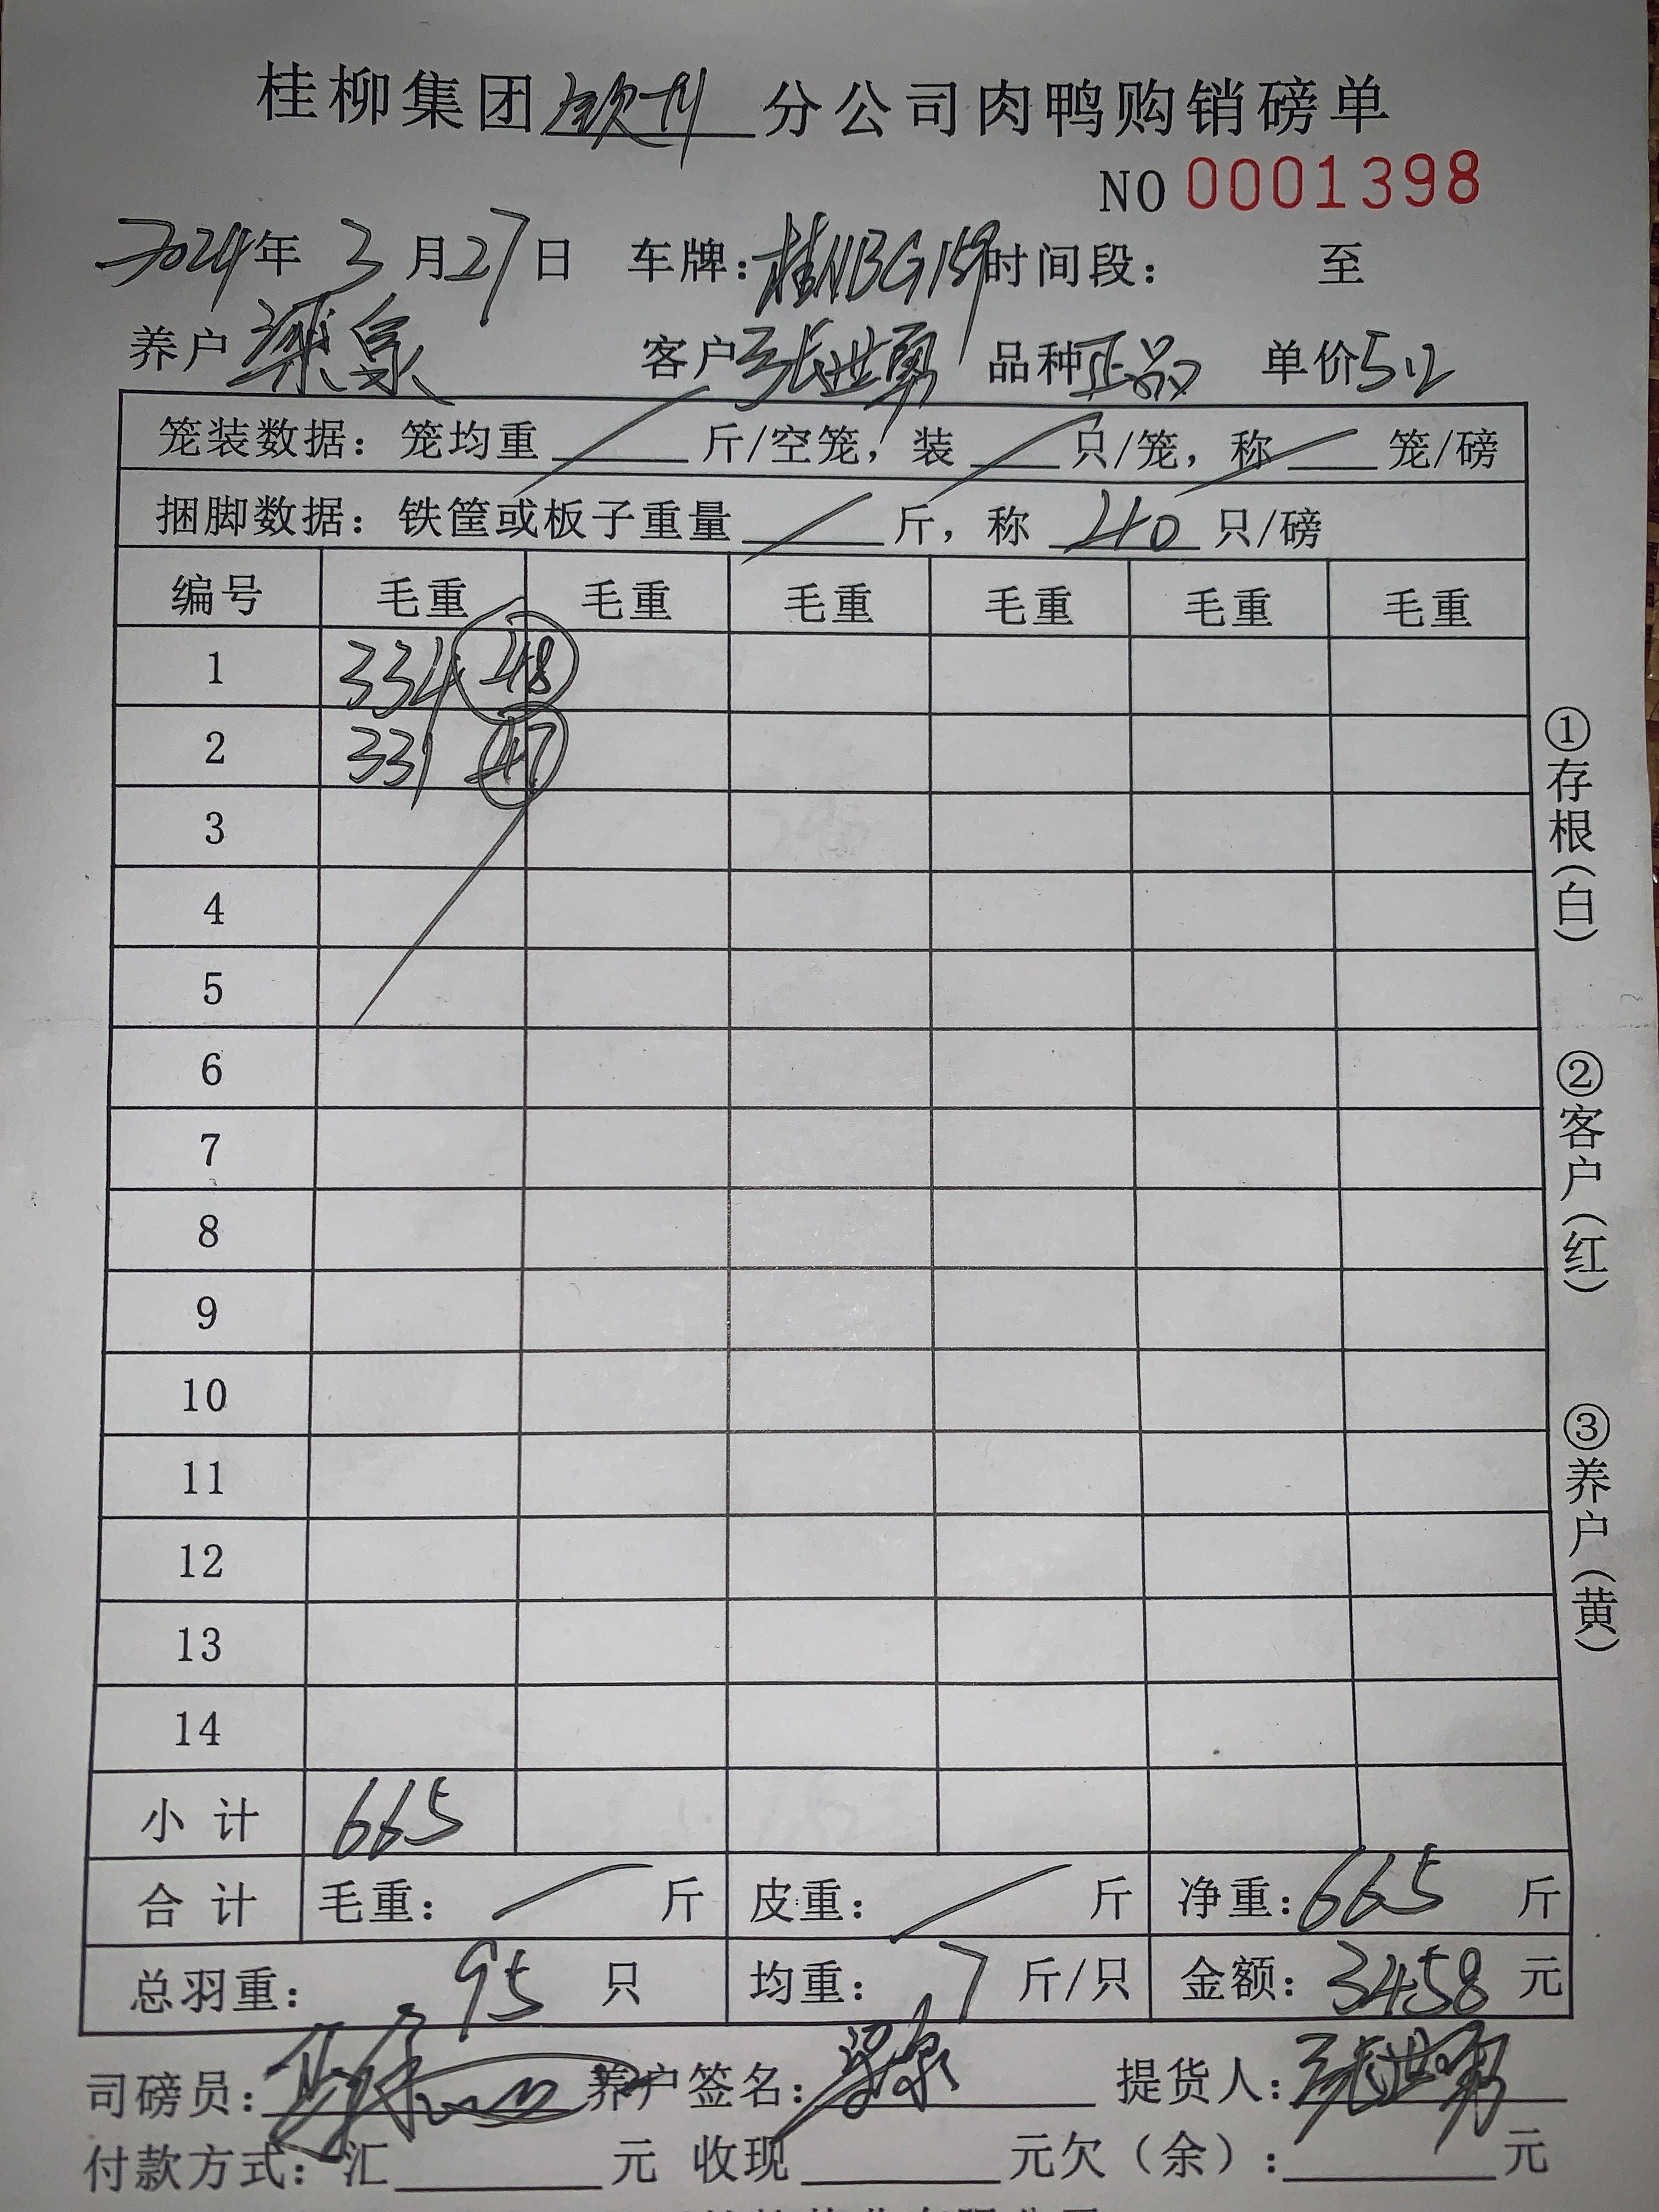 桂柳集团 钦州 分公司肉鸭购销磅单
NO 0001398
2024年 3月27日 车牌:桂NBG159 时间段: 至
养户 梁泉 客户 张世勇 品种 正品 单价 5.2
笼装数据:笼均重 / 斤/空笼,装 / 只/笼,称 / 笼/磅
捆脚数据:铁筐或板子重量 / 斤,称 40 只/磅
编号 毛重 毛重 毛重 毛重 毛重 毛重
1 334 48
2 331 47
3
4
5
6
7
8
9
10
11
12
13
14
小计 665
合计 毛重: / 斤 皮重: / 斤 净重:665 斤
总羽重: 95 只 均重: 7 斤/只 金额:3458 元
司磅员: 养户签名:梁泉 提货人:张世勇
付款方式:汇 元 收现 元欠(余): 元
①存根(白)
②客户(红)
③养户(黄)